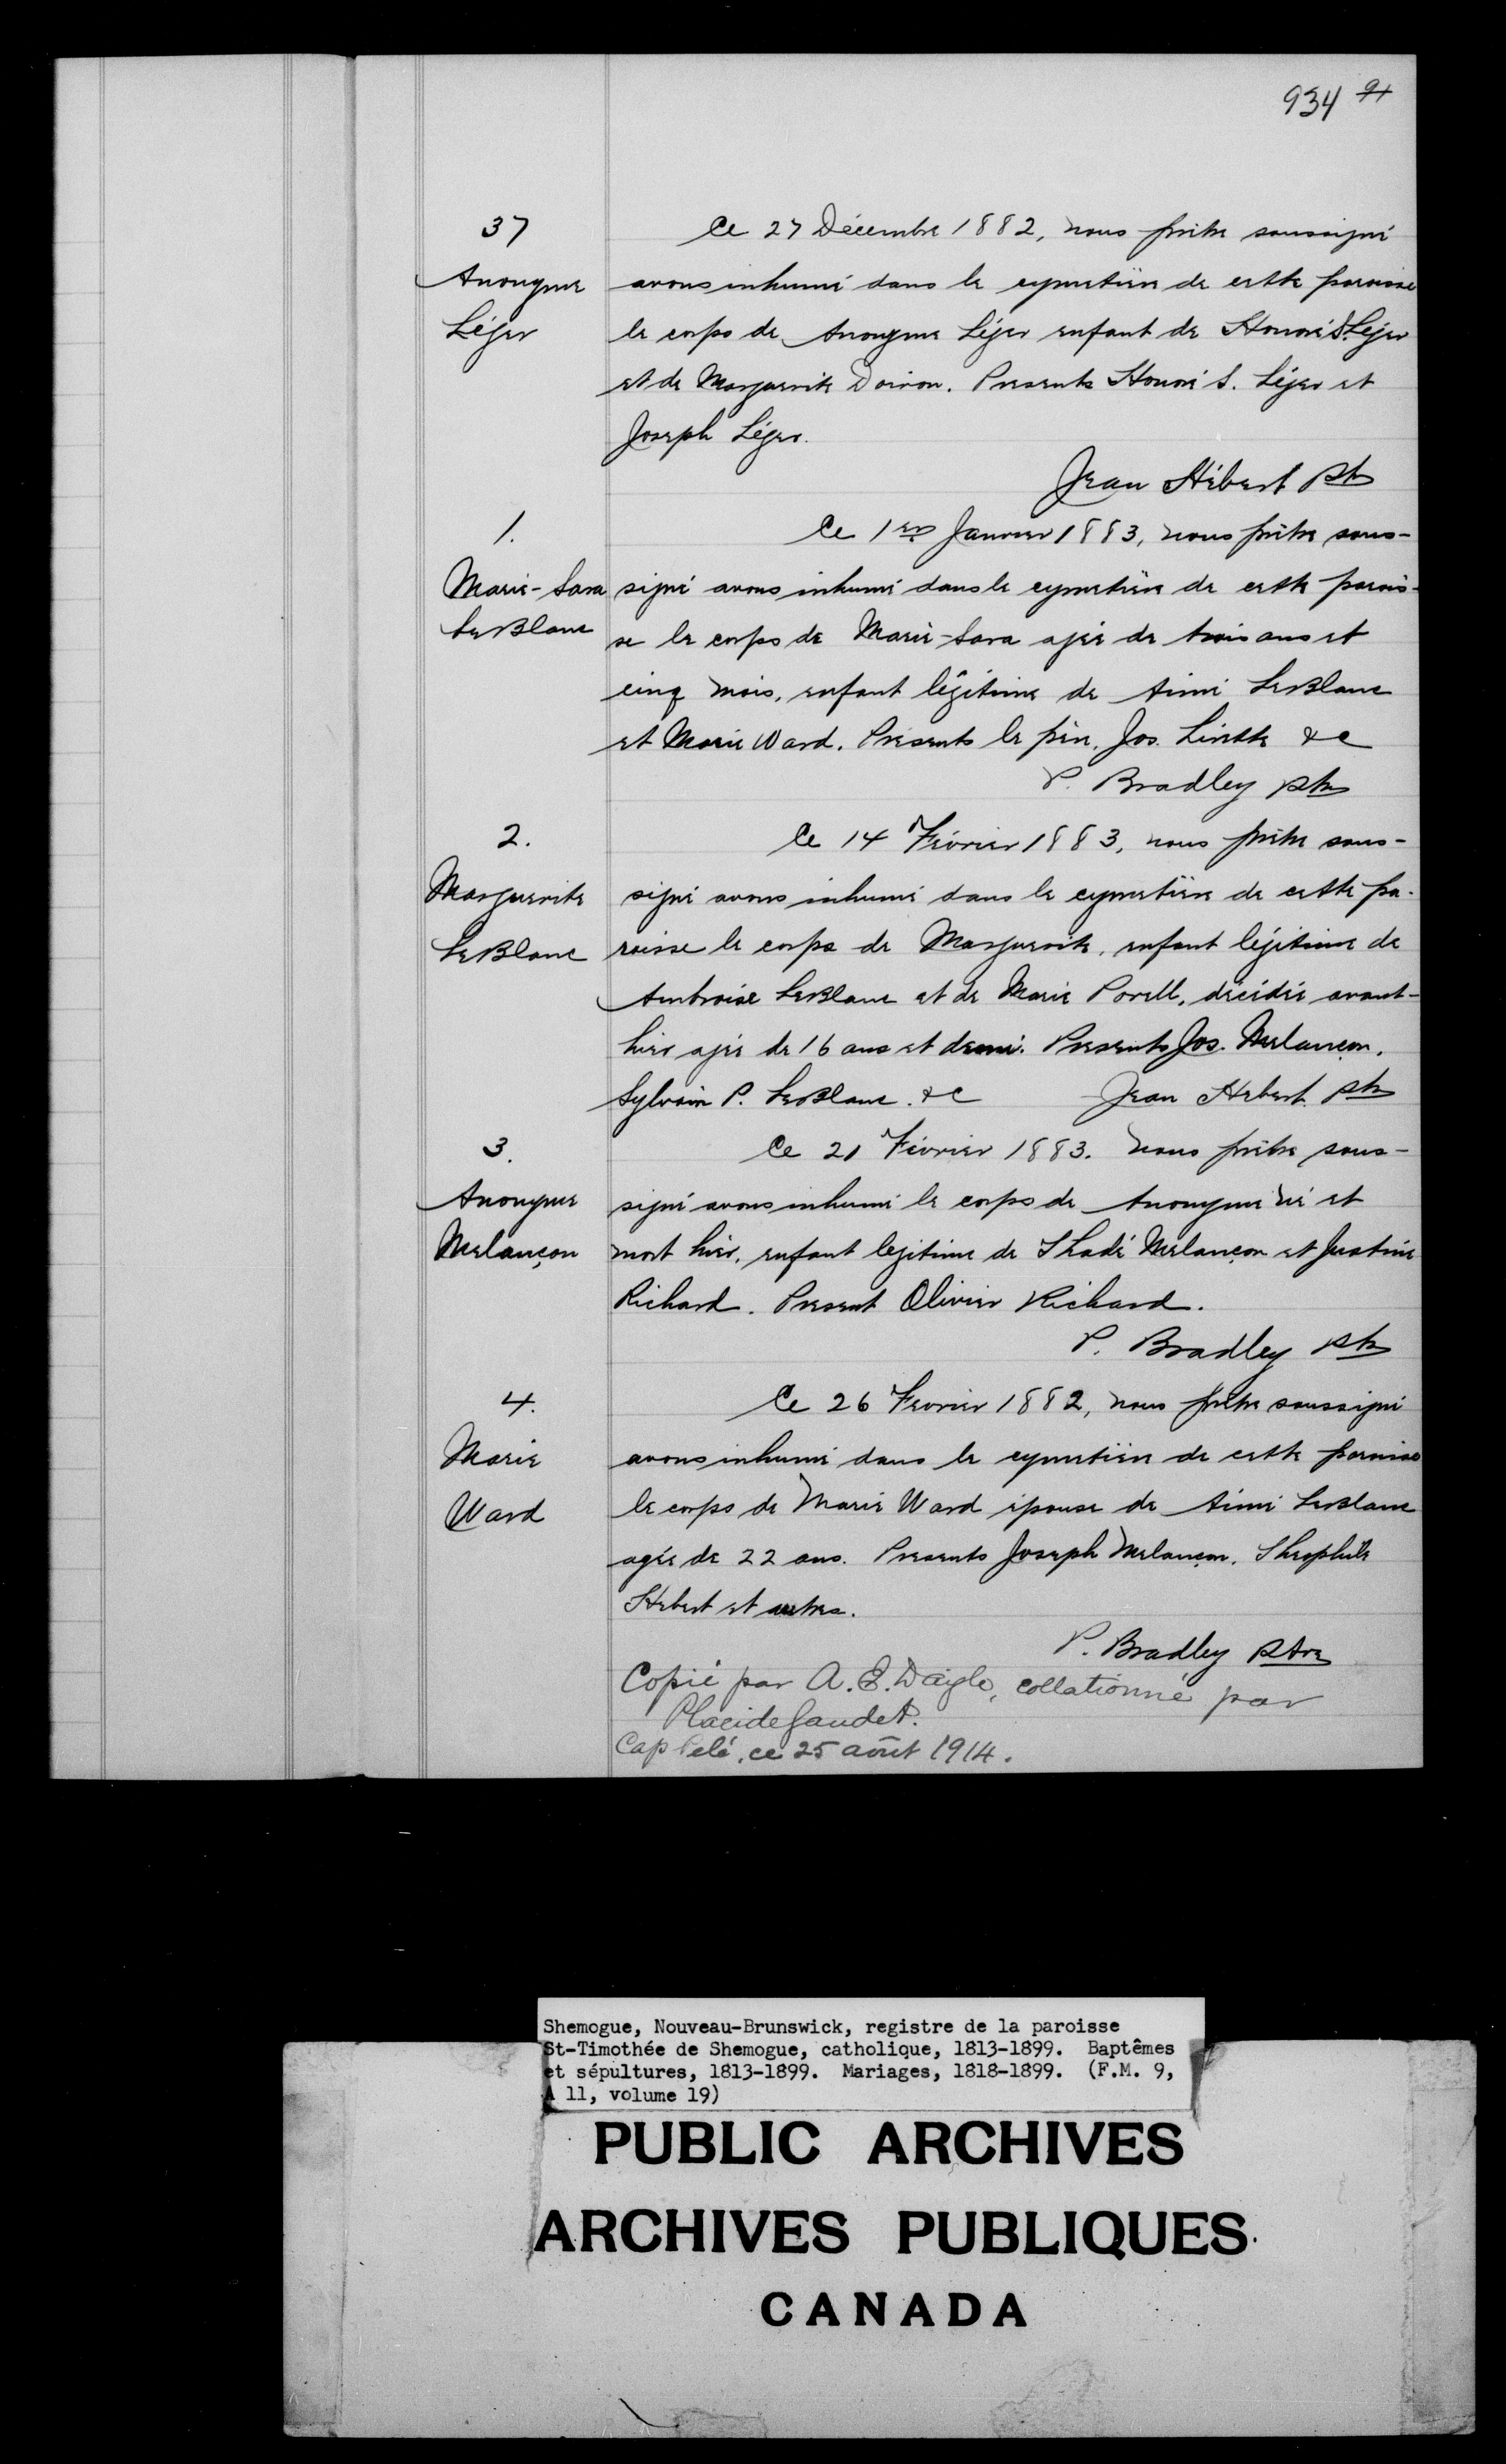 934 91
37
Anonyme
Léger
Ce 27 Décembre 1882, nous prêtre soussigné
avons inhumé dans le cymetière de cette paroisse
le corps de Anonyme Léger enfant de Honoré S. Léger
et de Marguerite Doiron. Presents Honoré S. Léger et
Joseph Léger.
Jean Hébert ptr
1.
Marie-Sara
LeBlanc
Ce 1er Janvier 1883, nous prêtre sous-
signé avons inhumé dans le cymetière de cette parois-
se le corps de Marie-Sara agée de trois ans et
cinq mois, enfant légitime de Aimé LeBlanc
et Marie Ward. Présents le père, Jos. &c
P. Bradley ptr
2.
Marguerite
LeBlanc
Ce 14 Février 1883, nous prêtre sous-
signé avons inhumé dans le cymetière de cette pa-
roisse le corps de Marguerite, enfant légitime de
Ambroise LeBlanc et de Marie Porell, décédée avant-
hier agée de 16 ans et demi. Presents Jos. Melançon,
Sylvain P. LeBlanc. &c Jean Hebert. ptr
3.
Anonyme
Melançon
Ce 21 Février 1883. nous prêtre sous-
signé avons inhumé le corps de Anonyme né et
mort hier, enfant legitime de Thadé Melançon et Justine
Richard. Present Olivier Richard.
P. Bradley ptr
4.
Marie
Ward
Ce 26 Fevrier 1882, nous prêtre soussigné
avons inhumé dans le cymetière de cette paroisse
le corps de Marie Ward épouse de Aimé LeBlanc
agée de 22 ans. Presents Joseph Melançon, Theophile
Hebert et autres.
P. Bradley ptre
Copié par A. E. Daigle, collationné par
Placide Gaudet.
Cap Pelé, ce 25 août 1914.
Shemogue, Nouveau-Brunswick, registre de la paroisse
St-Timothée de Shemogue, catholique, 1813-1899. Baptêmes
et sépultures, 1813-1899. Mariages, 1818-1899. (F.M. 9,
A 11, volume 19)
PUBLIC ARCHIVES
ARCHIVES PUBLIQUES
CANADA